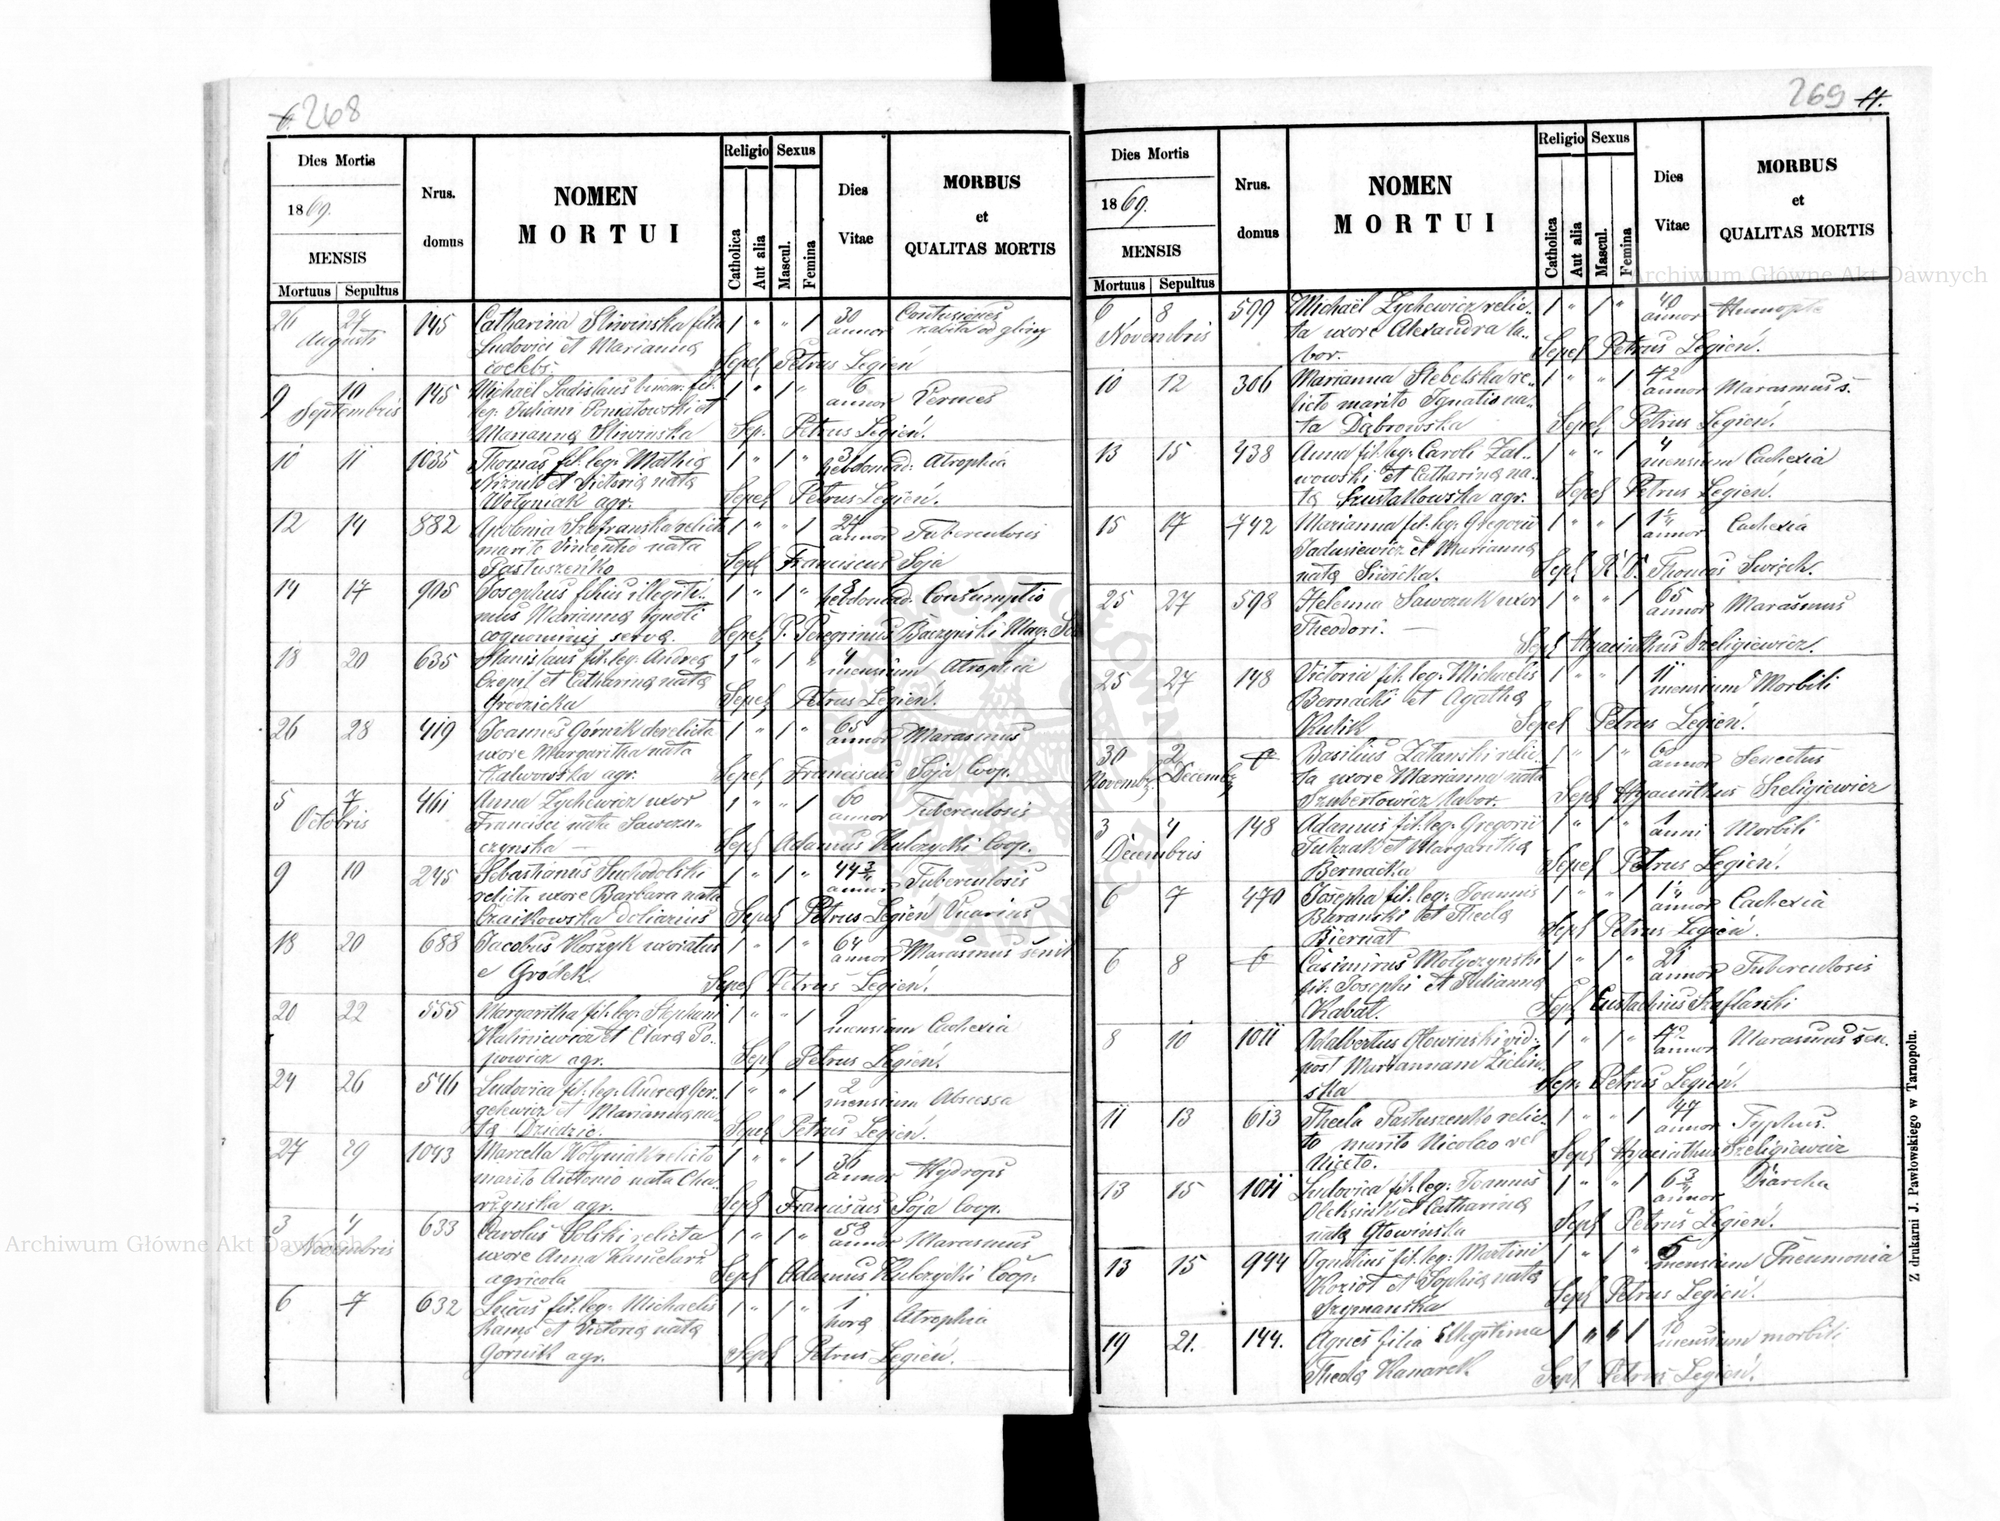 6. 268
Dies Mortis
1869.
MENSIS
Mortuus Sepultus
Nrus. domus
NOMEN
MORTUI
Religio
Catholica
Aut alia
Sexus
Mascul.
Femina
Dies
Vitae
MORBUS
et
QUALITAS MORTIS
26 27 145 Catharina Sliwinska filia 1 " " 1 30 Contusiones
Augusti Ludovici et Marianna annor
coelebs. Sepel Petrus Legień
9 10 145 Michaël Ladislaus binom. fil. 1 " 1 " 6
Septembris leg. Juliani Poniatowski et annor Vermes
Marianna Sliwinska Sep. Petrus Legień.
10 11 1035 Thomas fil. leg. Mathia 1 " 1 " 3 hebdomad. Atrophia
et Victoria nata
Wołyniak agr. Sepel Petrus Legień.
12 14 882 Apolonia Szafranska relicta 1 " " 1 27 annor Tuberculosis
marito Vincentio nata
Pastuszeńko Sepel Franciscus Soja
14 17 995 Josephus filius illegiti- 1 " 1 " 3 hebdomad. Consumptio
mus Marianna ignoti
cognominis serva. Sepel P. Peregrinus Baczyński
18 20 635 Stanislaus fil. leg. Andrea 1 " 1 " 4 mensium Atrophia
Czopp et Catharina nata
Grodzicka Sepel Petrus Legień.
26 28 419 Joannes Górnik derelicta 1 " 1 " 65 annor Marasmus
uxore Margaritha nata
Zalwowska agr. Sepel Franciscus Soja Coop.
5 7 461 Anna Zychewicz uxor 1 " " 1 60 annor Tuberculosis
Octobris Francisci nata Sawczu-
czynska — Sepel Adamus Kulczycki Coop.
9 10 245 Sebastianus Suchodolski 1 " 1 " 44 3/4 annor Tuberculosis
relicta uxore Barbara nata
Czaikowska doliarius Sepel Petrus Legień Vicarius
18 20 688 Jacobus Koszyk uxoratus 1 " 1 " 64 annor Marasmus senil
e Gródek. Sepel Petrus Legień.
20 22 555 Margaritha fil. leg. Stephani 1 " " 1 9 mensium Cachexia
Kaliniewicz et Clara Po-
powicz agr. Sepel Petrus Legień.
24 26 546 Ludovica fil. leg. Andrea Ger- 1 " " 1 2 mensium Abscessa
gelewicz et Marianna na-
ta Dziedzic. Sepel Petrus Legień.
27 29 1043 Marcella Wołyniak relicto 1 " " 1 36 annor Hydrops
marito Antonio nata Cha-
rzynska agr. Sepel Franciscus Sója Coop.
3 4 633 Carolus Solski relicta 1 " 1 " 58 annor Marasmus
Novembris uxore Anna
agricola Sepel Adamus Kulczycki Coop.
6 7 632 Lucas fil. leg. Michaelis 1 " 1 " 1 hora Atrophia
Kams et Victoria nata
Górnik agr. Sepel Petrus Legień.
269
Dies Mortis
1869.
MENSIS
Mortuus Sepultus
Nrus. domus
NOMEN
MORTUI
Religio
Catholica
Aut alia
Sexus
Mascul.
Femina
Dies
Vitae
MORBUS
et
QUALITAS MORTIS
6 8 599 Michaël Zychewicz relic- 1 " 1 " 40 annor
Novembris ta uxore Alexandra la-
bor. Sepel Petrus Legień.
10 12 306 Marianna Stebelska re- 1 " " 1 72 annor Marasmus.
licto marito Ignatio na-
ta Dąbrowska Sepel Petrus Legień.
13 15 438 Anna fil. leg. Caroli Zal- 1 " " 1 4 mensium Cachexia
wowski et Catharina na-
ta Szustakowska agr. Sepel Petrus Legień.
15 17 742 Marianna fil. leg. Gregorii 1 " " 1 1 1/4 annor Cachexia
Jadusiewicz et Marianna
nata Siwicka. Sepel Thomas
25 27 598 Helenna Sawczuk uxor 1 " " 1 65 annor Marasmus
Theodori. — Sepel Hyacinthus Szeligiewicz.
25 27 148 Victoria fil. leg. Michaelis 1 " " 1 11 mensium Morbili
Bernacki et Agatha
Kulik Sepel Petrus Legień.
30 2 Basilius Zatanski relic- 1 " 1 " annor Senectus
Novemb. Decemb. ta uxore Marianna nata
Szubertowicz labor. Sepel Hyacinthus Szeligiewicz
3 4 148 Adamus fil. leg. Gregorii 1 " 1 " 1 anni Morbili
Decembris et Margaritha
Bernacka Sepel Petrus Legień.
6 7 470 Josepha fil. leg. Joannis 1 " " 1 annor Cachexia
Baranski et Thecla
Biernat Sepel Petrus Legień.
6 8 Casimirus Mołyczynski 1 " 1 " 21 annor Tuberculosis
fil. Josephi et Julianna
Kabat. Sepel Eustachius Szaflarski
8 10 1011 Adalbertus Głowinski vid- 1 " 1 " 72 annor Marasmus sen.
post Mariannam Zielin-
ska Sep. Petrus Legień.
11 13 613 Thecla Pastuszenko relic- 1 " " 1 47 annor Typhus.
to marito Nicolao vel
Niceto. Sepel Hyacinthus Szeligiewicz
13 15 1011 Ludovica fil. leg. Joannis 1 " " 1 6 3/4 annor Diarrhea
Oleksiuk et Catharina
nata Głowinska Sepel Petrus Legień.
13 15 944 Ignatius fil. leg. Martini 1 " 1 " 5 mensium Pneumonia
Kozioł et Sophia nata
Szymanska Sepel Petrus Legień.
19 21. 144. Agnes filia illegitima 1 " " 1 10 mensium morbili
Thecla Kanarek. Sepel Petrus Legień.
Z drukarni J. Pawłowskiego w Tarnopolu.
Archiwum Główne Akt Dawnych
Archiwum Główne Akt Dawnych